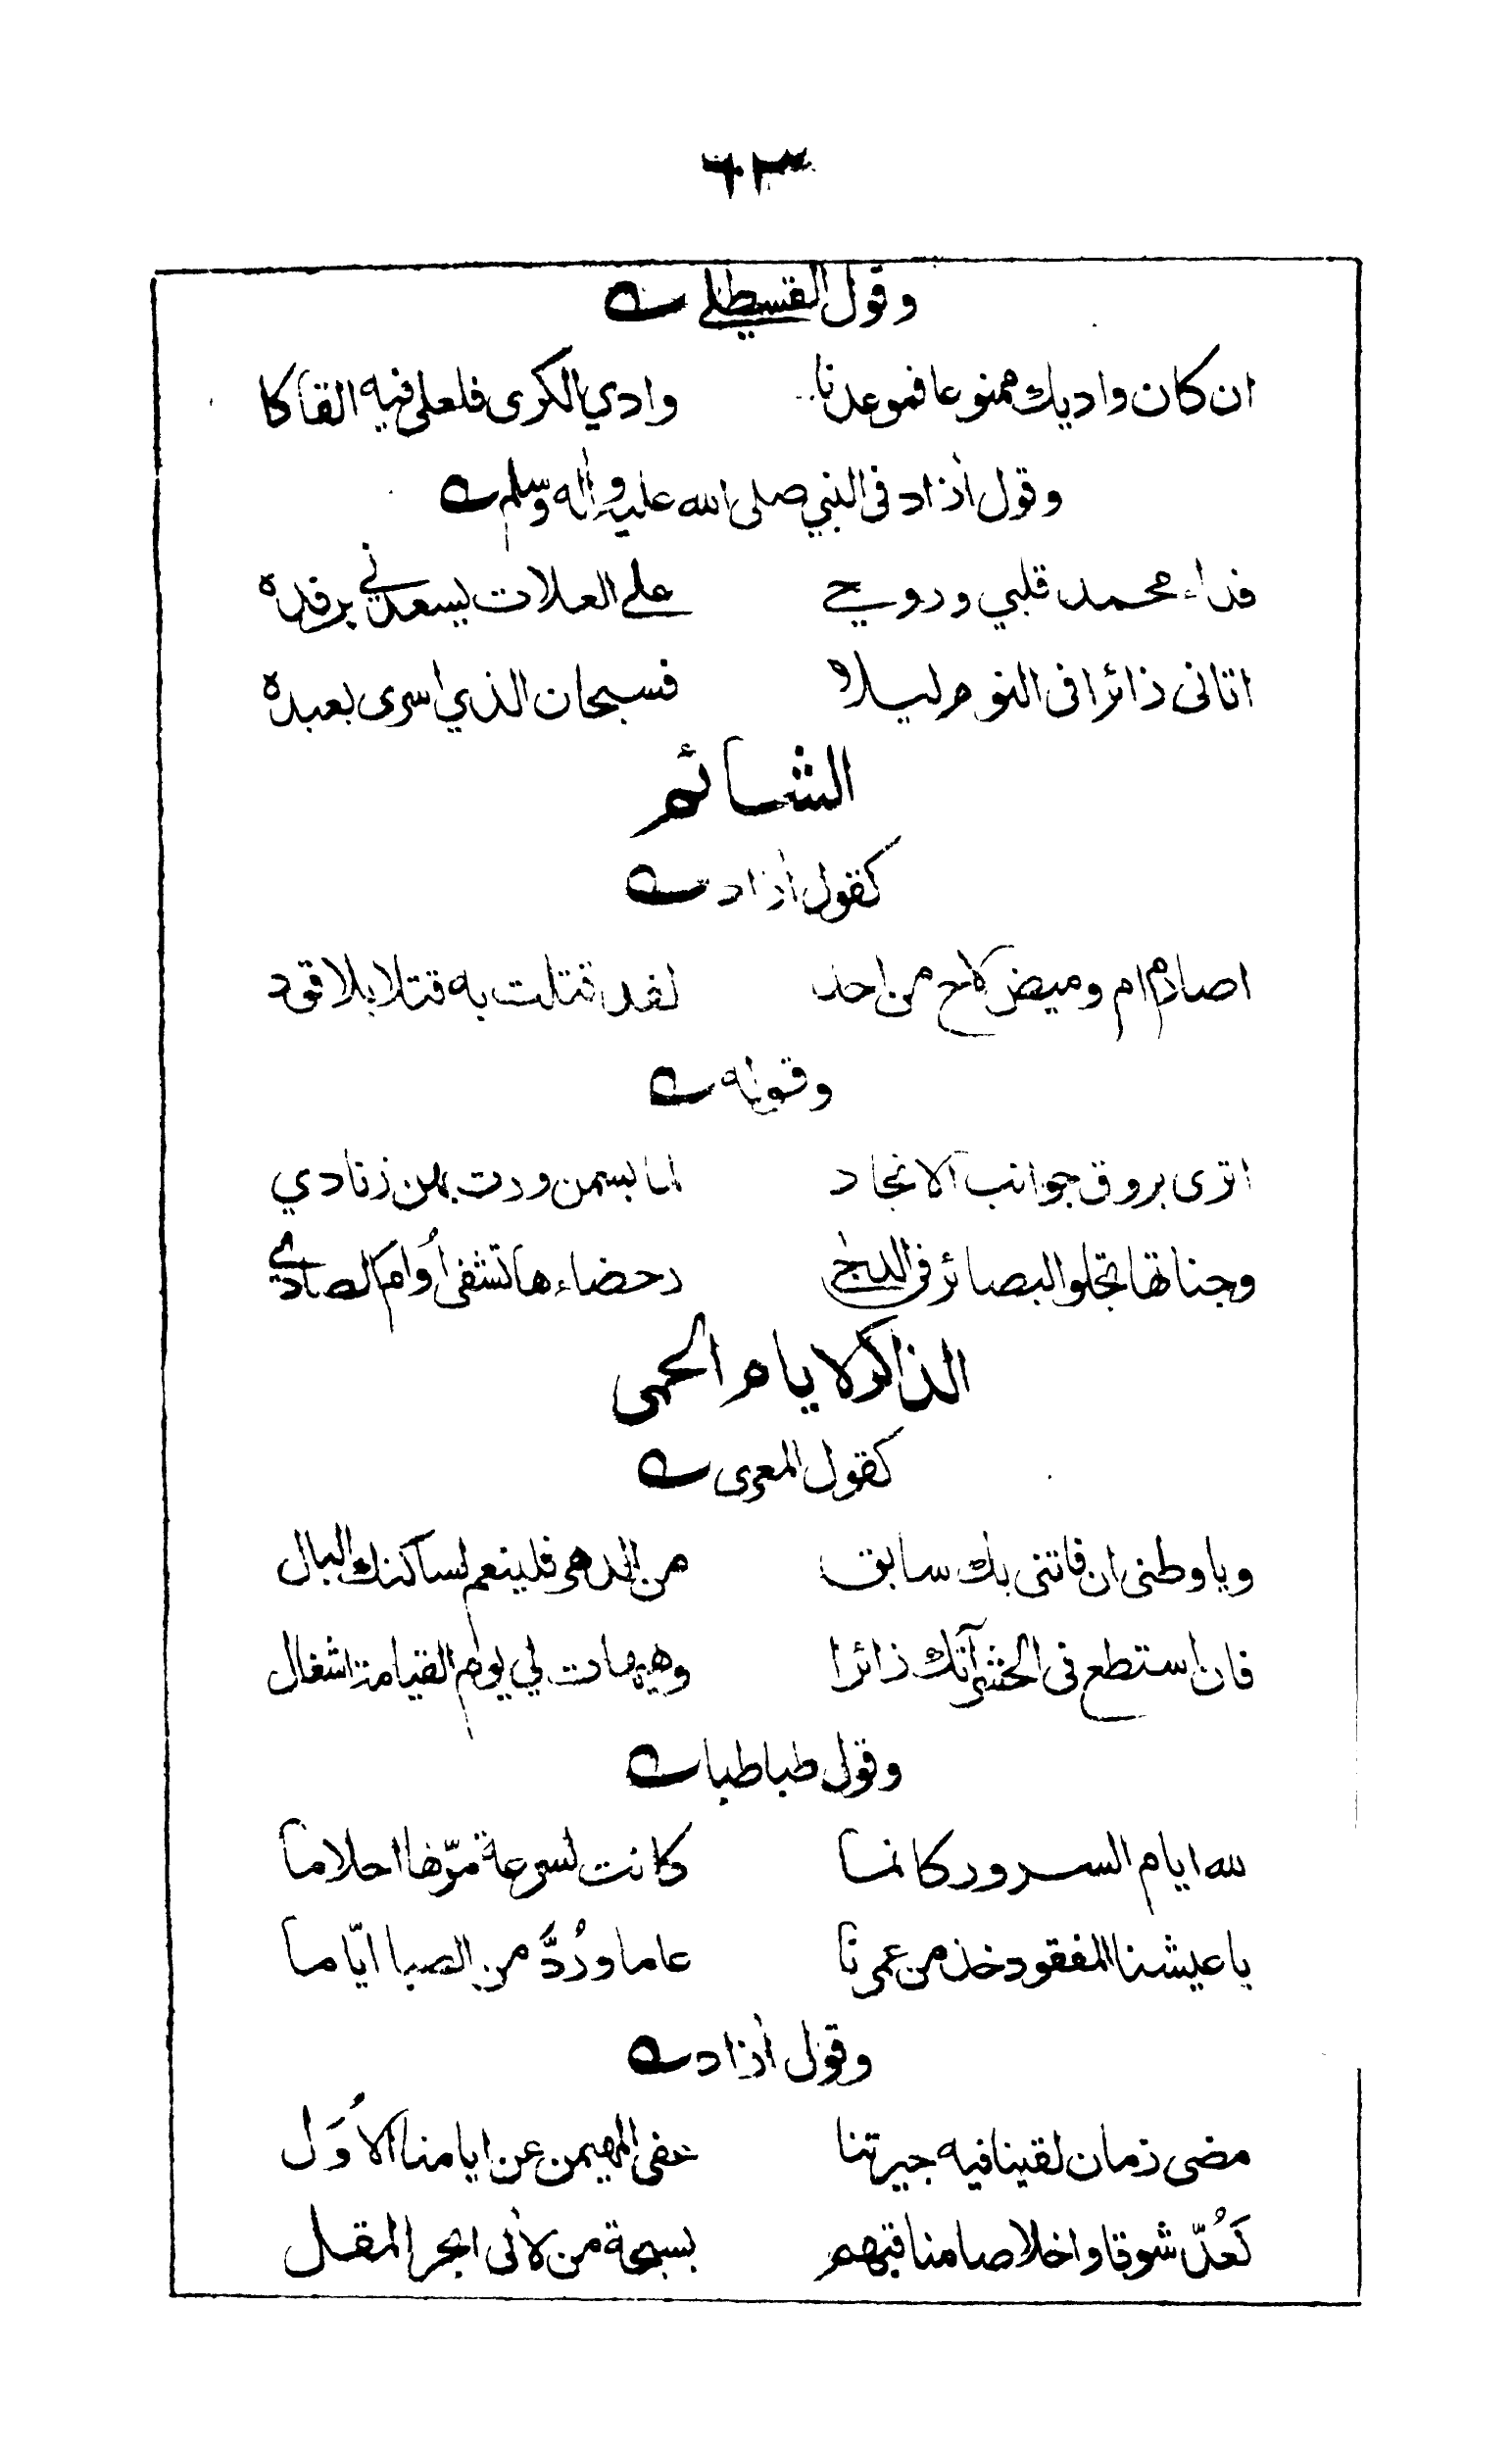 ٦٣
وقول القسطلي
ان كان واديك ممنوعا فموعدنا وادي الكرى فلعلى فيه القاكا
وقول أزاد فى النبي صلى الله عليه وأله وسلم
فداء محمد قلبي وروحي على العلات يسعدني برفده
اتانى زائرا فى النوم ليلا فسبحان الذي اسرى بعبده
الشائم
كقول أزاد
اصارم ام وميض لاح من احد لقد قتلت به قتلا بلا قود
وقوله
اترى بروق جوانب الانجاد لما بسمن ورت بهن زنادي
وجناتها تجلو البصائر فى الدجى رحضاءها تشفى أوام الصادي
الذاكر لايام الحمى
كقول المعرى
ويا وطنى ان فاتنى بك سابق من الدهر فلينعم لساكنك البال
فان استطع فى الحشر آتك زائرا وهيهات لي يوم القيامة اشغال
وقول طباطبا
لله ايام السرور كانما كانت لسرعة مرّها احلاما
يا عيشنا المفقود خذ من عمرنا عاما ورُدَّ من الصبا ايّاما
وقول أزاد
مضى زمان لقينا فيه جيرتنا عفى المهيمن عن ايامنا الأُوَل
نَعُدّ شوقا واخلاصا مناقبهم بسبحة من لألى ابحر المقل